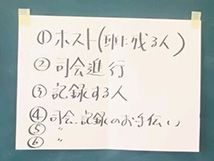 ①ホスト(班に残る人)
②司会進行
③記録する人
④司会.記録のお手伝い
⑤ 〃
⑥ 〃